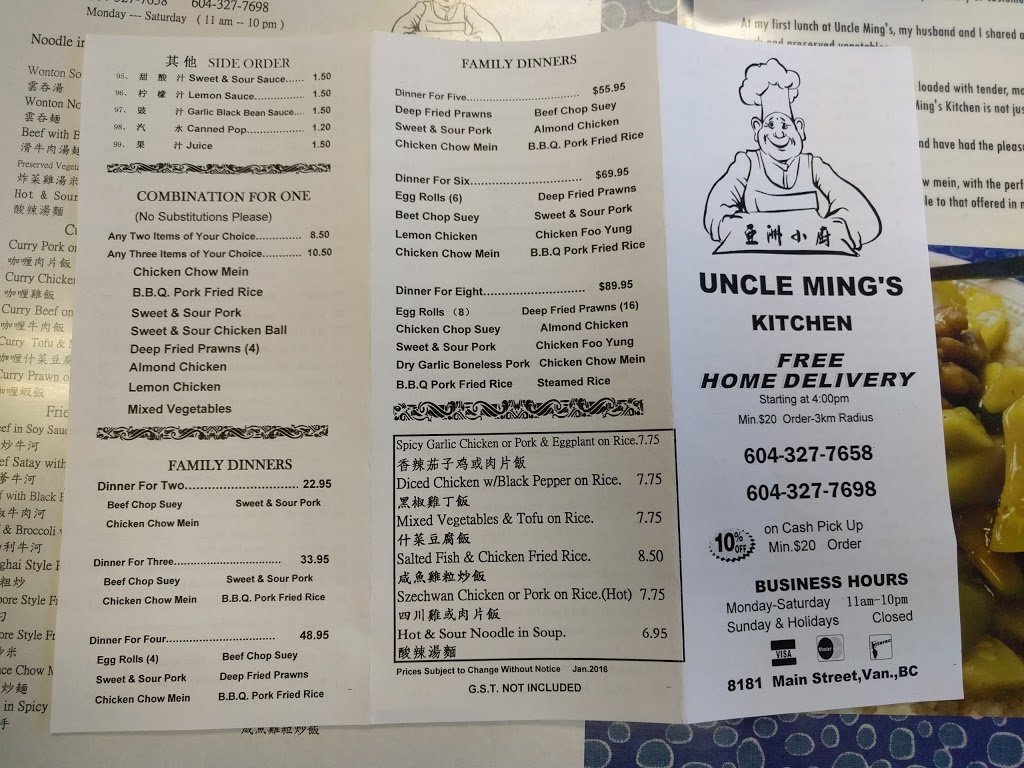 604-327-7698
Monday --- Saturday ( 11 am -- 10 pm )
Noodle in
Wonton So
雲吞湯
Wonton No
雲吞麵
Beef with B
滑牛肉湯麵
Preserved Vegeta
炸菜雞湯米
Hot & Sour
酸辣湯麵
Cu
Curry Pork o
咖喱肉片飯
Curry Chicken
咖喱雞飯
Curry Beef on
咖喱牛肉飯
Curry Tofu &
咖喱什菜豆腐
Curry Prawn o
咖喱蝦飯
Frie
eef in Soy Sauc
炒牛河
ef Satay with
牛河
f with Black
椒牛河
& Broccoli
利牛河
ghai Style F
粗炒
pore Style Fr
ore Style Fr
炒米
ce Chow
炒麵
in Spicy
手
咸魚雞粒炒飯
其他 SIDE ORDER
95、 甜酸汁 Sweet & Sour Sauce...... 1.50
96、 柠檬汁 Lemon Sauce.................. 1.50
97、 豉汁 Garlic Black Bean Sauce.... 1.50
98、 汽水 Canned Pop.................... 1.20
99、 果汁 Juice 1.50
COMBINATION FOR ONE
(No Substitutions Please)
Any Two Items of Your Choice............. 8.50
Any Three Items of Your Choice............ 10.50
Chicken Chow Mein
B.B.Q. Pork Fried Rice
Sweet & Sour Pork
Sweet & Sour Chicken Ball
Deep Fried Prawns (4)
Almond Chicken
Lemon Chicken
Mixed Vegetables
FAMILY DINNERS
Dinner For Two............................. 22.95
Beef Chop Suey Sweet & Sour Pork
Chicken Chow Mein
Dinner For Three................................ 33.95
Beef Chop Suey Sweet & Sour Pork
Chicken Chow Mein B.B.Q. Pork Fried Rice
Dinner For Four.............................. 48.95
Egg Rolls (4) Beef Chop Suey
Sweet & Sour Pork Deep Fried Prawns
Chicken Chow Mein B.B.Q. Pork Fried Rice
FAMILY DINNERS
Dinner For Five................................ $55.95
Deep Fried Prawns Beef Chop Suey
Sweet & Sour Pork Almond Chicken
Chicken Chow Mein B.B.Q. Pork Fried Rice
Dinner For Six................................ $69.95
Egg Rolls (6) Deep Fried Prawns
Beet Chop Suey Sweet & Sour Pork
Lemon Chicken Chicken Foo Yung
Chicken Chow Mein B.B.Q Pork Fried Rice
Dinner For Eight............................. $89.95
Egg Rolls （8） Deep Fried Prawns (16)
Chicken Chop Suey Almond Chicken
Sweet & Sour Pork Chicken Foo Yung
Dry Garlic Boneless Pork Chicken Chow Mein
B.B.Q Pork Fried Rice Steamed Rice
Spicy Garlic Chicken or Pork & Eggplant on Rice.7.75
香辣茄子鸡或肉片飯
Diced Chicken w/Black Pepper on Rice. 7.75
黑椒雞丁飯
Mixed Vegetables & Tofu on Rice. 7.75
什菜豆腐飯
Salted Fish & Chicken Fried Rice. 8.50
咸魚雞粒炒飯
Szechwan Chicken or Pork on Rice.(Hot) 7.75
四川雞或肉片飯
Hot & Sour Noodle in Soup. 6.95
酸辣湯麵
Prices Subject to Change Without Notice Jan.2016
G.S.T. NOT INCLUDED
亚洲小厨
UNCLE MING'S
KITCHEN
FREE
HOME DELIVERY
Starting at 4:00pm
Min.$20 Order-3km Radius
604-327-7658
604-327-7698
10% OFF on Cash Pick Up
Min.$20 Order
BUSINESS HOURS
Monday-Saturday 11am-10pm
Sunday & Holidays Closed
VISA
8181 Main Street,Van.,BC
At my first lunch at Uncle Ming's, my husband and I shared a
and preserved vegetable
loaded with tender, mo
Ming's Kitchen is not jus
nd have had the pleasu
w mein, with the perf
le to that offered in